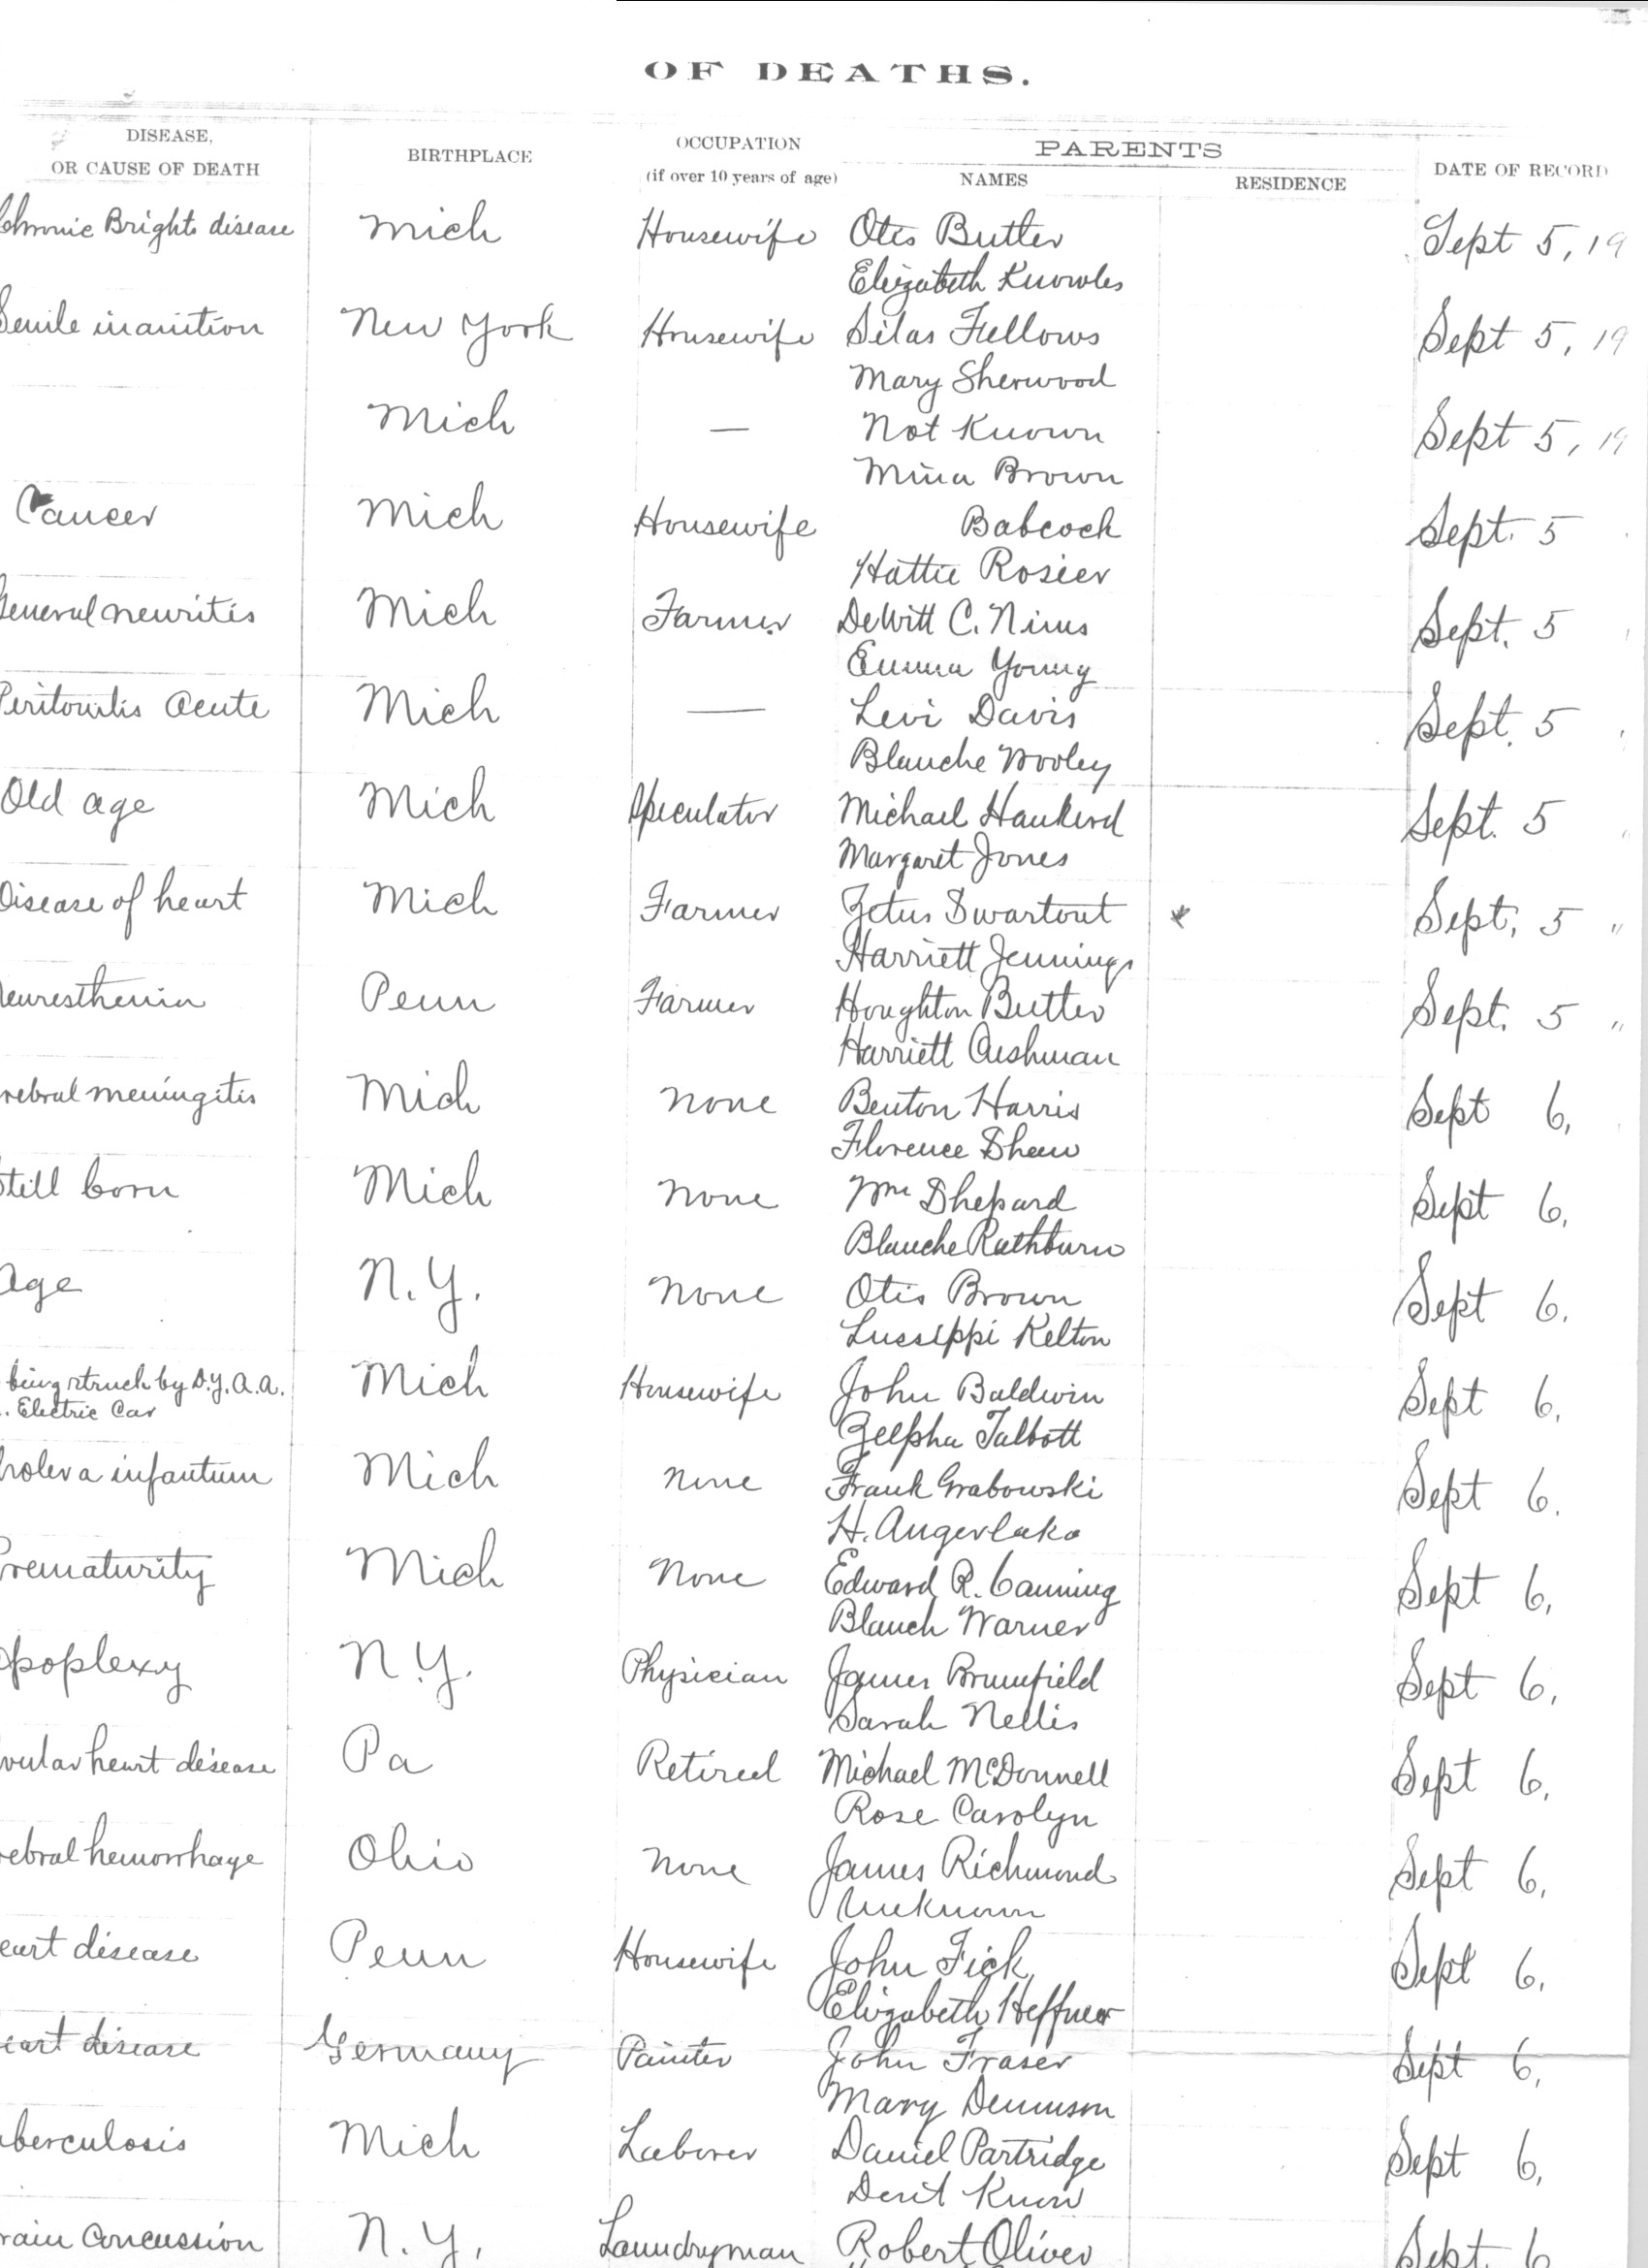 OF DEATHS.
DISEASE,
OR CAUSE OF DEATH
BIRTHPLACE
OCCUPATION
(if over 10 years of age)
PARENTS
NAMES
RESIDENCE
DATE OF RECORD
Chronic Brights disease Mich Housewife Otis Butler Sept 5, 19
Elizabeth Knowles
Senile inanition New York Housewife Silas Fellows Sept 5, 19
Mary Sherwood
Mich — Not Known Sept 5, 19
Mina Brown
Cancer Mich Housewife Babcock Sept. 5
Hattie Rosier
General neuritis Mich Farmer DeWitt C. Nims Sept. 5
Emma Young
Peritonitis acute Mich — Levi Davis Sept. 5
Blanche Wooley
Old age Mich Speculator Michael Hankerd Sept. 5
Margaret Jones
Disease of heart Mich Farmer Zetus Swartout Sept, 5 "
Harriett Jennings
Neuresthenia Penn Farmer Houghton Butler Sept. 5 "
Harriett Cushman
rebral meningitis Mich none Benton Harris Sept 6,
Florence Shaw
Still born Mich none Wm Shepard Sept 6,
Blanche Rathburn
Age N.Y. none Otis Brown Sept 6.
Lussippi Kelton
being struck by D.Y.A.A. Mich Housewife John Baldwin Sept 6,
. Electric Car
Zelpha Talbott
holera infantum Mich none Frank Grabowski Sept 6.
H. Angerlaka
Prematurity Mich none Edward R. Canning Sept 6,
Blanch Warner
Apoplexy N.Y. Physician James Brumfield Sept 6,
Sarah Nellis
vular heart disease Pa Retired Michael McDonnell Sept 6,
Rose Carolyn
rebral hemorrhage Ohio none James Richmond Sept 6,
Unknown
eart disease Penn Housewife John Fick Sept 6,
Elizabeth Heffner
eart disease Germany Painter John Fraser Sept 6,
Mary Dennison
berculosis Mich Laborer Daniel Partridge Sept 6,
Dont Know
rain Concussion N.Y. Laundryman Robert Oliver Sept. 6